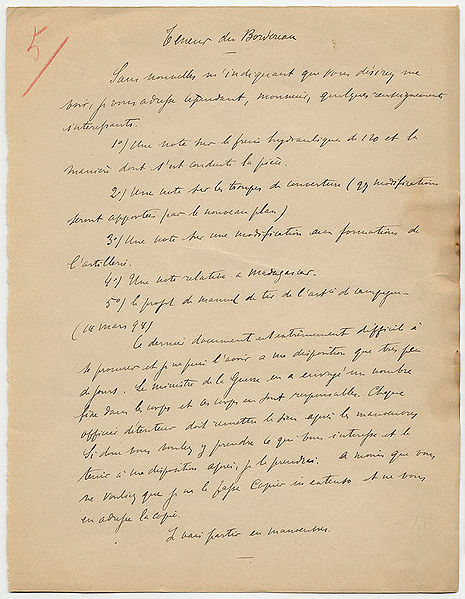 5
Teneur du Bordereau
Sans nouvelles m'indiquant que vous désirez me
voir, je vous adresse cependant, monsieur, quelques renseignements
intéressants.
1º) Une note sur le frein hydraulique de 120 et la
manière dont s'est conduite la pièce.
2º) Une note sur les troupes de couverture (qq modifications
seront apportées par le nouveau plan)
3º) Une note sur une modification aux formations de
l'artillerie.
4º) Une note relative à Madagascar.
5º) le projet de manuel de tir de l'artie de campagne
(14 mars 94)
Ce dernier document est extrêmement difficile à
se procurer et je ne puis l'avoir à ma disposition que très peu
de jours. Le ministre de la Guerre en a envoyé un nombre
fixe dans les corps et ces corps en sont responsables. Chaque
officier détenteur doit remettre le sien après les manœuvres
Si donc vous voulez y prendre ce qui vous intéresse et le
tenir à ma disposition après, je le prendrai. A moins que vous
ne vouliez que je ne le fasse copier in extenso et ne vous
en adresse la copie.
Je vais partir en manœuvres.